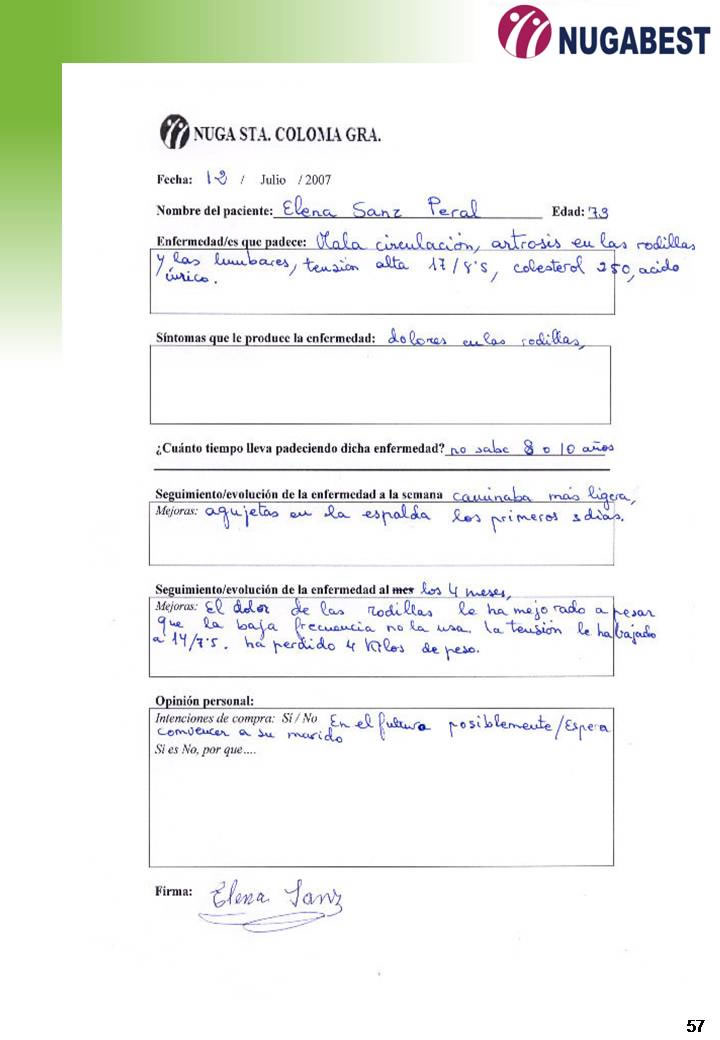 NUGABEST
NUGA STA. COLOMA GRA.
Fecha: 12 / Julio / 2007
Nombre del paciente: Elena Sanz Peral Edad: 73
Enfermedad/es que padece: Mala circulación, artrosis en las rodillas
y las lumbares, tensión alta 17/8'5, colesterol 250, acido
úrico.
Síntomas que le produce la enfermedad: dolores en las rodillas,
¿Cuánto tiempo lleva padeciendo dicha enfermedad? no sabe 8 o 10 años
Seguimiento/evolución de la enfermedad a la semana caminaba más ligera,
Mejoras: agujetas en la espalda los primeros 3 dias.
Seguimiento/evolución de la enfermedad al mes los 4 meses,
Mejoras: El dolor de las rodillas le ha mejorado a pesar
que la baja frecuencia no la usa. la tensión le ha bajado
a 14/7'5. ha perdido 4 Kilos de peso.
Opinión personal:
Intenciones de compra: Si / No En el futuro posiblemente/Espera
convencer a su marido
Si es No, por que....
Firma: Elena Sanz
57